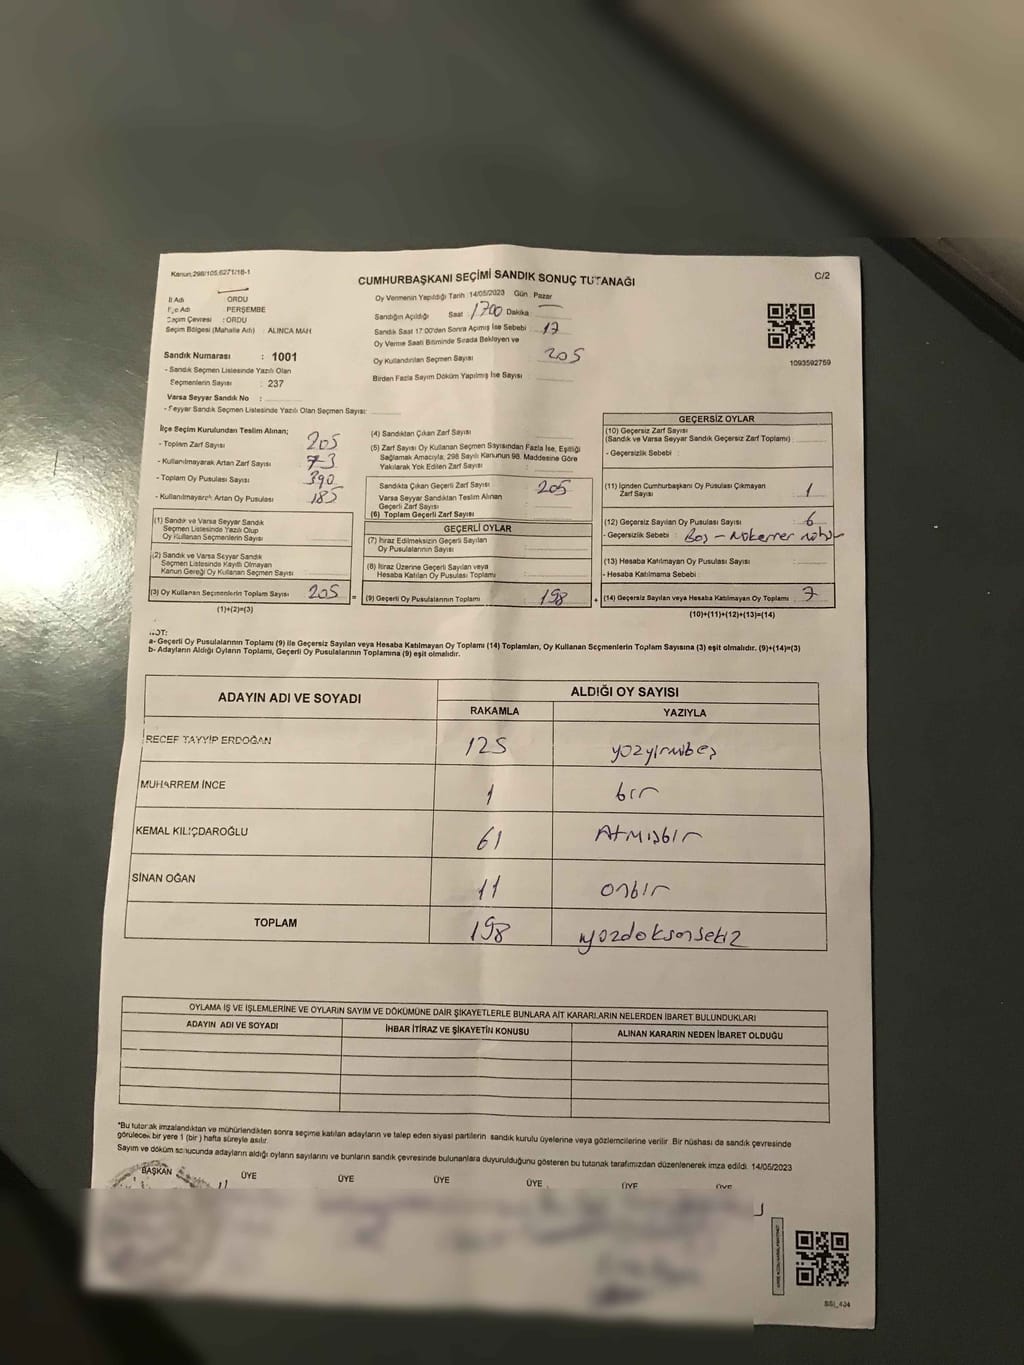 Kanun:298/105,6271/18-1
CUMHURBAŞKANI SEÇİMİ SANDIK SONUÇ TUTANAĞI
C/2
İl Adı ORDU
İlçe Adı PERŞEMBE
Seçim Çevresi : ORDU
Seçim Bölgesi (Mahalle Adı) : ALINCA MAH
Sandık Numarası : 1001
- Sandık Seçmen Listesinde Yazılı Olan
Seçmenlerin Sayısı : 237
Varsa Seyyar Sandık No :
- Seyyar Sandık Seçmen Listesinde Yazılı Olan Seçmen Sayısı:
Oy Vermenin Yapıldığı Tarih :14/05/2023 Gün : Pazar
Sandığın Açıldığı Saat : 1700 Dakika :
Sandık Saat 17:00'den Sonra Açımış İse Sebebi : 17
Oy Verme Saati Bitiminde Sırada Bekleyen ve
Oy Kullandırılan Seçmen Sayısı : 205
Birden Fazla Sayım Döküm Yapılmış İse Sayısı :
1093592759
İlçe Seçim Kurulundan Teslim Alınan;
- Toplam Zarf Sayısı : 205
- Kullanılmayarak Artan Zarf Sayısı : 73
- Toplam Oy Pusulası Sayısı : 390
- Kullanılmayarak Artan Oy Pusulası : 185
(1) Sandık ve Varsa Seyyar Sandık
Seçmen Listesinde Yazılı Olup
Oy Kullanan Seçmenlerin Sayısı :
(2) Sandık ve Varsa Seyyar Sandık
Seçmen Listesinde Kayıtlı Olmayan
Kanun Gereği Oy Kullanan Seçmen Sayısı :
(3) Oy Kullanan Seçmenlerin Toplam Sayısı : 205
(1)+(2)=(3)
(4) Sandıktan Çıkan Zarf Sayısı :
(5) Zarf Sayısı Oy Kullanan Seçmen Sayısından Fazla İse, Eşitliği
Sağlamak Amacıyla, 298 Sayılı Kanunun 98. Maddesine Göre
Yakılarak Yok Edilen Zarf Sayısı :
Sandıkta Çıkan Geçerli Zarf Sayısı : 205
Varsa Seyyar Sandıktan Teslim Alınan
Geçerli Zarf Sayısı :
(6) Toplam Geçerli Zarf Sayısı :
GEÇERLİ OYLAR
(7) İtiraz Edilmeksizin Geçerli Sayılan
Oy Pusulalarının Sayısı :
(8) İtiraz Üzerine Geçerli Sayılan veya
Hesaba Katılan Oy Pusulası Toplamı :
=
(9) Geçerli Oy Pusulalarının Toplamı : 198
+
GEÇERSİZ OYLAR
(10) Geçersiz Zarf Sayısı
(Sandık ve Varsa Seyyar Sandık Geçersiz Zarf Toplamı) :
- Geçersizlik Sebebi :
(11) İçinden Cumhurbaşkanı Oy Pusulası Çıkmayan
Zarf Sayısı : 1
(12) Geçersiz Sayılan Oy Pusulası Sayısı : 6
- Geçersizlik Sebebi : Boş -
(13) Hesaba Katılmayan Oy Pusulası Sayısı :
- Hesaba Katılmama Sebebi :
(14) Geçersiz Sayılan veya Hesaba Katılmayan Oy Toplamı : 7
(10)+(11)+(12)+(13)=(14)
NOT:
a- Geçerli Oy Pusulalarının Toplamı (9) ile Geçersiz Sayılan veya Hesaba Katılmayan Oy Toplamı (14) Toplamları, Oy Kullanan Seçmenlerin Toplam Sayısına (3) eşit olmalıdır. (9)+(14)=(3)
b- Adayların Aldığı Oyların Toplamı, Geçerli Oy Pusulalarının Toplamına (9) eşit olmalıdır.
ADAYIN ADI VE SOYADI
ALDIĞI OY SAYISI
RAKAMLA YAZIYLA
RECEP TAYYİP ERDOĞAN 125 yözyirmibeş
MUHARREM İNCE 1 bir
KEMAL KILIÇDAROĞLU 61 Atmışbir
SİNAN OĞAN 11 onbir
TOPLAM 198 yözdoksansekiz
OYLAMA İŞ VE İŞLEMLERİNE VE OYLARIN SAYIM VE DÖKÜMÜNE DAİR ŞİKAYETLERLE BUNLARA AİT KARARLARIN NELERDEN İBARET BULUNDUKLARI
ADAYIN ADI VE SOYADI İHBAR İTİRAZ VE ŞİKAYETİN KONUSU ALINAN KARARIN NEDEN İBARET OLDUĞU
*Bu tutanak imzalandıktan ve mühürlendikten sonra seçime katılan adayların ve talep eden siyasi partilerin sandık kurulu üyelerine veya gözlemcilerine verilir. Bir nüshası da sandık çevresinde
görülecek bir yere 1 (bir) hafta süreyle asılır.
Sayım ve döküm sonucunda adayların aldığı oyların sayılarını ve bunların sandık çevresinde bulunanlara duyurulduğunu gösteren bu tutanak tarafımızdan düzenlenerek imza edildi. 14/05/2023
BAŞKAN ÜYE ÜYE ÜYE ÜYE ÜYE ÜYE